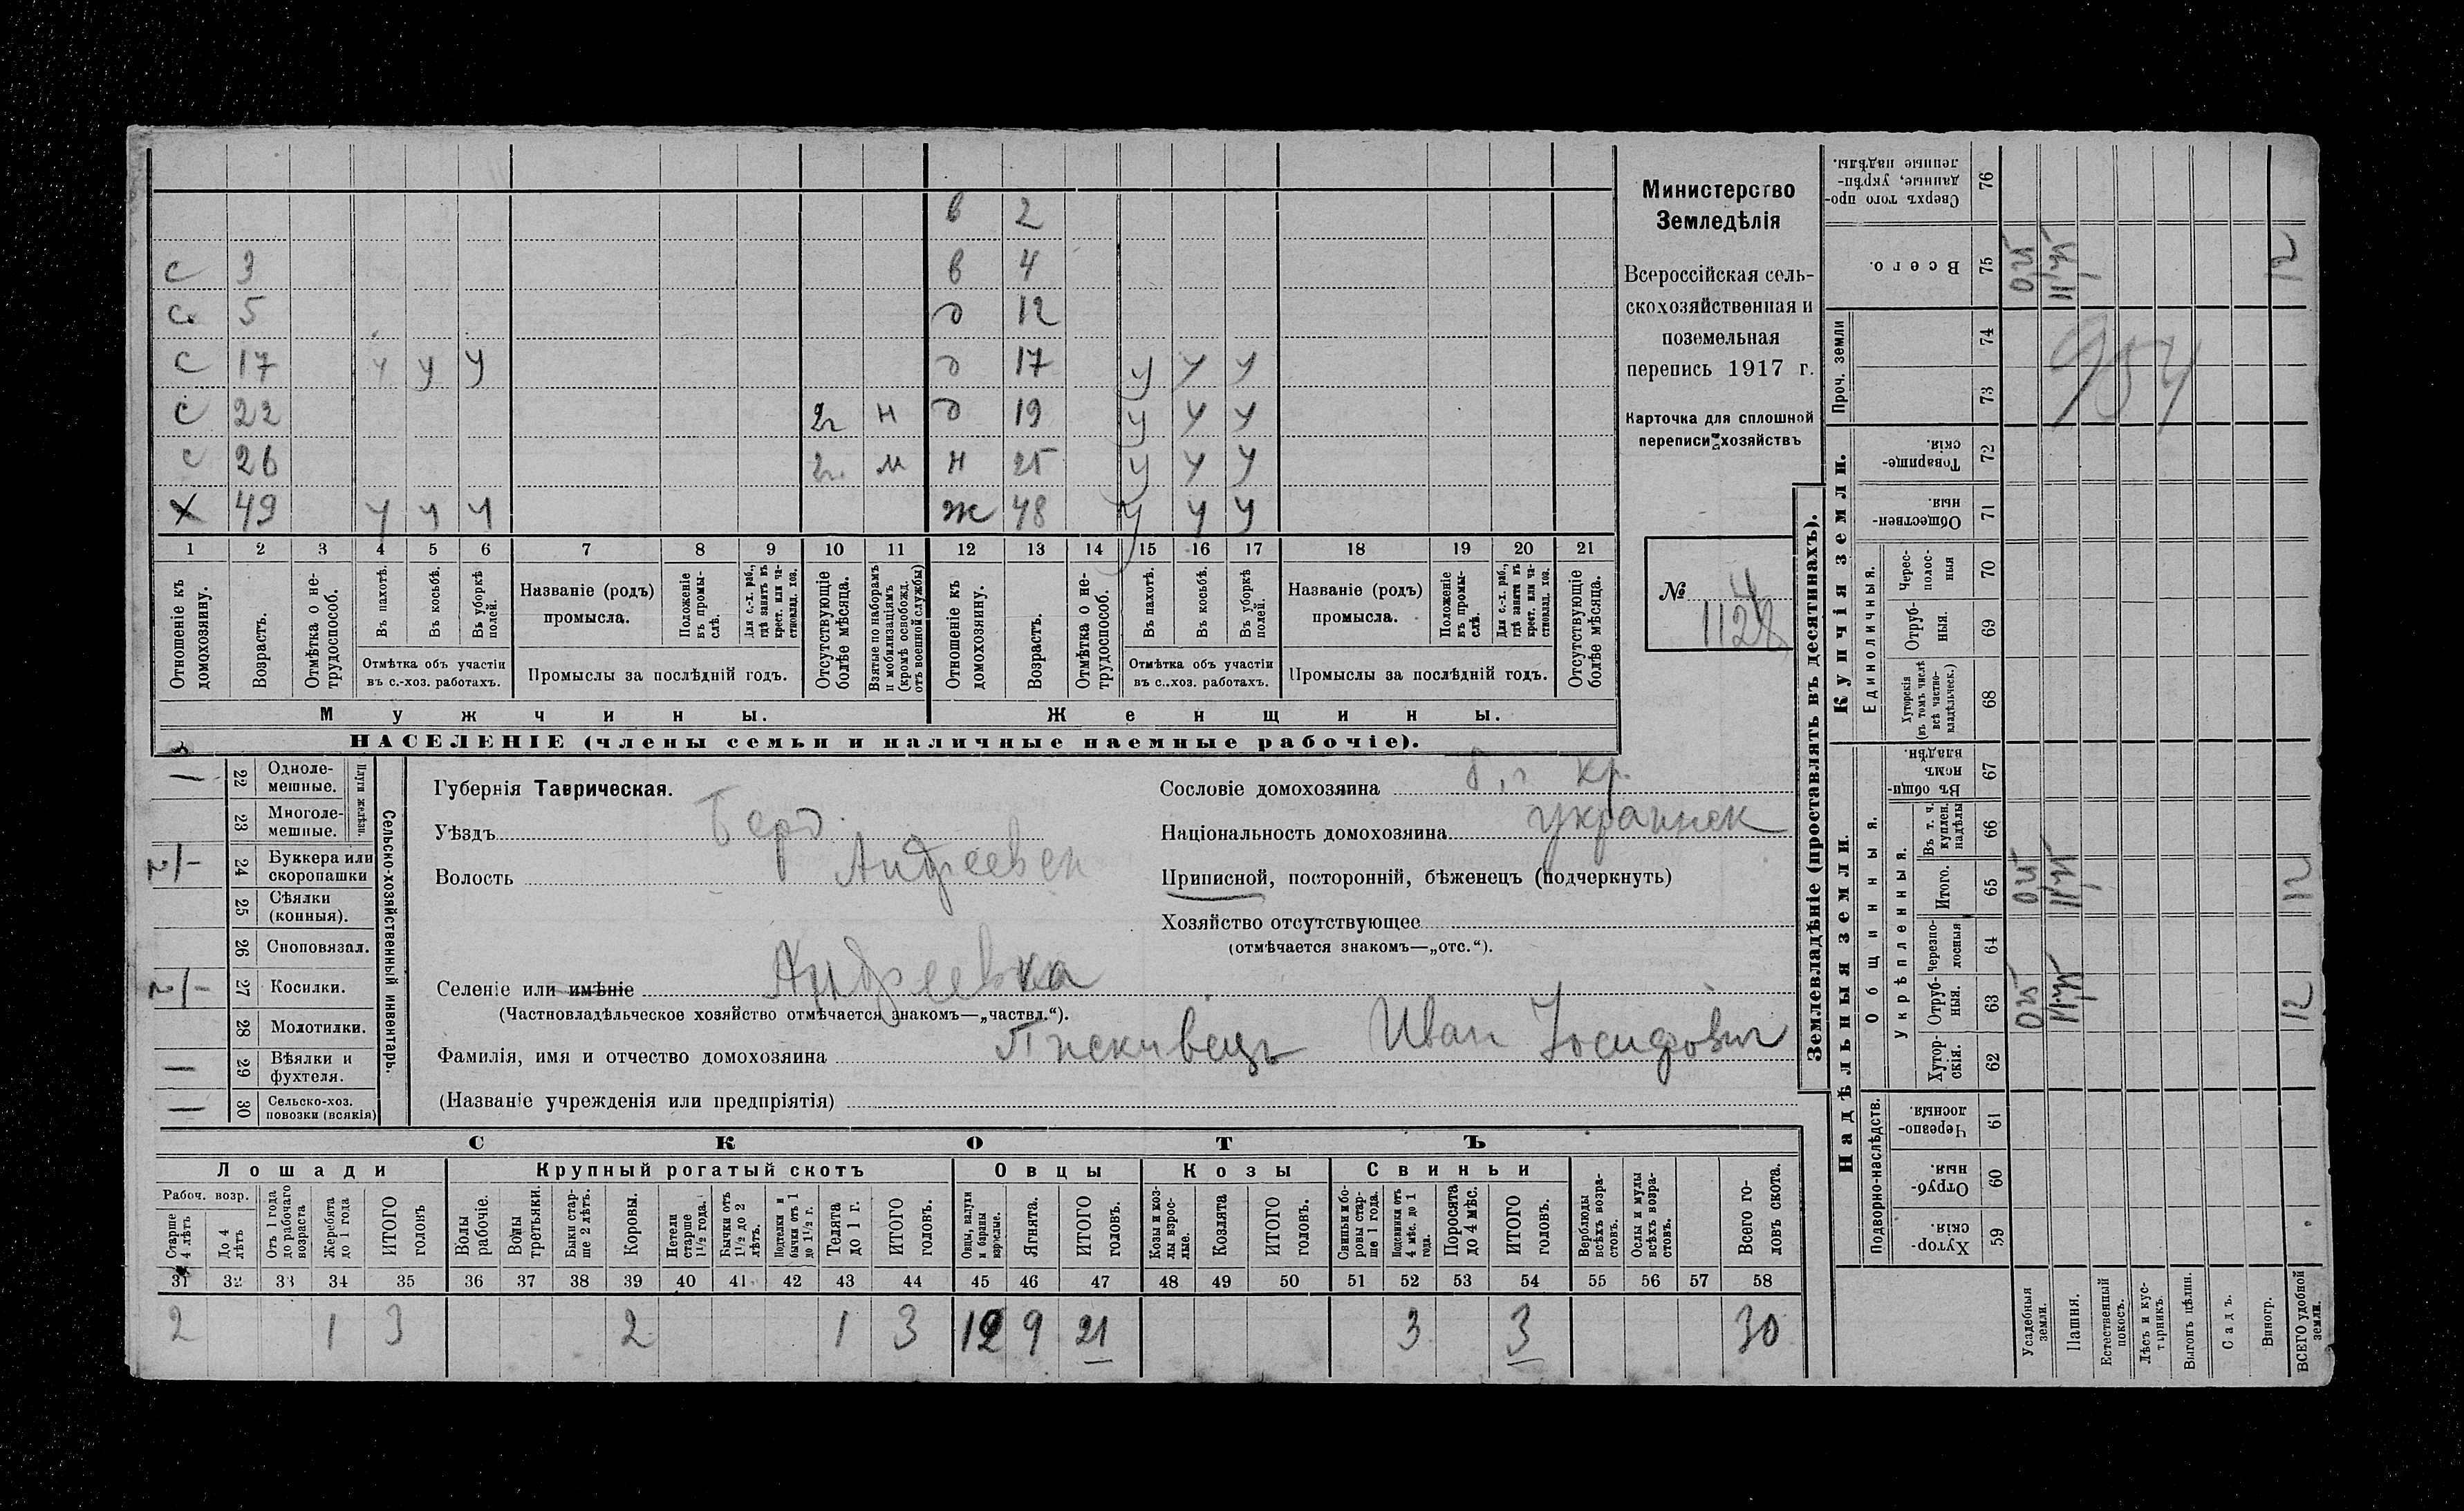 в 2
с 3 в 4
с. 5 д 12
с 17 у у у д 17 у у у
с 22 2г н д 19 у у у
с 26 2г. м н 25 у у у
х 49 у у у ж 48 у у у
1 2 3 4 5 6 7 8 9 10 11 12 13 14 15 16 17 18 19 20 21
Отношеніе къ домохозяину.
Возрастъ.
Отмѣтка о не-трудоспособ.
Въ пахотѣ.
Въ косьбѣ.
Въ уборкѣ полей.
Отмѣтка объ участіи
въ с.-хоз. работахъ.
Названіе (родъ)
промысла.
Положеніе въ промы-слѣ.
Для с.-х. раб., гдѣ занятъ въ крест. или ча-стновлад. хоз.
Промыслы за послѣдній годъ.
Отсутствующіе болѣе мѣсяца.
Взятые по наборамъ и мобилизаціямъ (кромѣ освобожд. отъ военной службы)
Отношеніе къ домохозяину.
Возрастъ.
Отмѣтка о не-трудоспособ.
Въ пахотѣ.
Въ косьбѣ.
Въ уборкѣ полей.
Отмѣтка объ участіи
въ с.-хоз. работахъ.
Названіе (родъ)
промысла.
Положеніе въ промы-слѣ.
Для с.-х. раб., гдѣ занятъ въ крест. или ча-стновлад. хоз.
Промыслы за послѣдній годъ.
Отсутствующіе болѣе мѣсяца.
Мужчины. Женщины.
НАСЕЛЕНІЕ (члены семьи и наличные наемные рабочіе).
Министерство
Земледѣлія
Всероссійская сель-
скохозяйственная и
поземельная
перепись 1917 г.
Карточка для сплошной
переписи хозяйствъ
№ 4
1128
22 Одноле-мешные.
23 Многоле-мешные.
Плуги желѣзн.
24 Буккера или скоропашки
25 Сѣялки (конныя).
26 Сноповязал.
27 Косилки.
28 Молотилки.
29 Вѣялки и фухтеля.
30 Сельско-хоз. повозки (всякія)
Сельско-хозяйственный инвентарь.
Губернія Таврическая.
Уѣздъ Берд.
Волость Андреевск
Селеніе или имѣніе Андреевка
(Частновладѣльческое хозяйство отмѣчается знакомъ—„частвл.“).
Фамилія, имя и отчество домохозяина Пискивець Иван Иосифович
(Названіе учрежденія или предпріятія)
Сословіе домохозяина кр.
Національность домохозяина украинск
Приписной, посторонній, бѣженецъ (подчеркнуть)
Хозяйство отсутствующее
(отмѣчается знакомъ—„отс.“).
СКОТЪ
Лошади Крупный рогатый скотъ Овцы Козы Свиньи
Рабоч. возр.
Старше 4 лѣтъ
До 4 лѣтъ
Отъ 1 года до рабочаго возраста
Жеребята до 1 года
ИТОГО головъ
Волы рабочіе.
Волы третьяки.
Быки стар-ше 2 лѣтъ.
Коровы.
Нетели старше 1½ года.
Бычки отъ 1½ до 2 лѣтъ.
Подтелки и бычки отъ 1 до 1½ г.
Телята до 1 г.
ИТОГО головъ.
Овцы, валухи и бараны взрослые.
Ягнята.
ИТОГО головъ.
Козы и коз-лы взрос-лые.
Козлята
ИТОГО головъ.
Свиньи и бо-ровы стар-ше 1 года.
Подсвинки отъ 4 мѣс. до 1 года.
Поросята до 4 мѣс.
ИТОГО головъ.
Верблюды всѣхъ возра-стовъ.
Ослы и мулы всѣхъ возра-стовъ.
Всего го-ловъ скота.
31 32 33 34 35 36 37 38 39 40 41 42 43 44 45 46 47 48 49 50 51 52 53 54 55 56 57 58
2 1 3 2 1 3 12 9 21 3 3 30
Землевладѣніе (проставлять въ десятинахъ).
Надѣльныя земли. Купчія земли. Проч. земли
Подворно-наслѣдств.
Общинныя.
Укрѣпленныя.
Единоличныя.
Хутор-скія. 59
Отруб-ныя. 60
Черезпо-лосныя. 61
Хутор-скія. 62
Отруб-ныя. 63
Черезпо-лосныя 64
Итого. 65
Въ т. ч. куплен. надѣлы 66
Въ общи-номъ владѣн. 67
Хуторскія (въ томъ числѣ всѣ частно-владѣльческ.) 68
Отруб-ныя. 69
Черес-полос-ныя 70
Обществен-ныя 71
Товарище-скія. 72
73
74
Всего. 75
Сверхъ того про-данные, укрѣп-ленные надѣлы. 76
Усадебныя земли.
Пашня.
Естественный покосъ.
Лѣсъ и кус-тарникъ.
Выгонъ цѣлин.
Садъ.
Виногр.
ВСЕГО удобной земли.
12
12
12
954